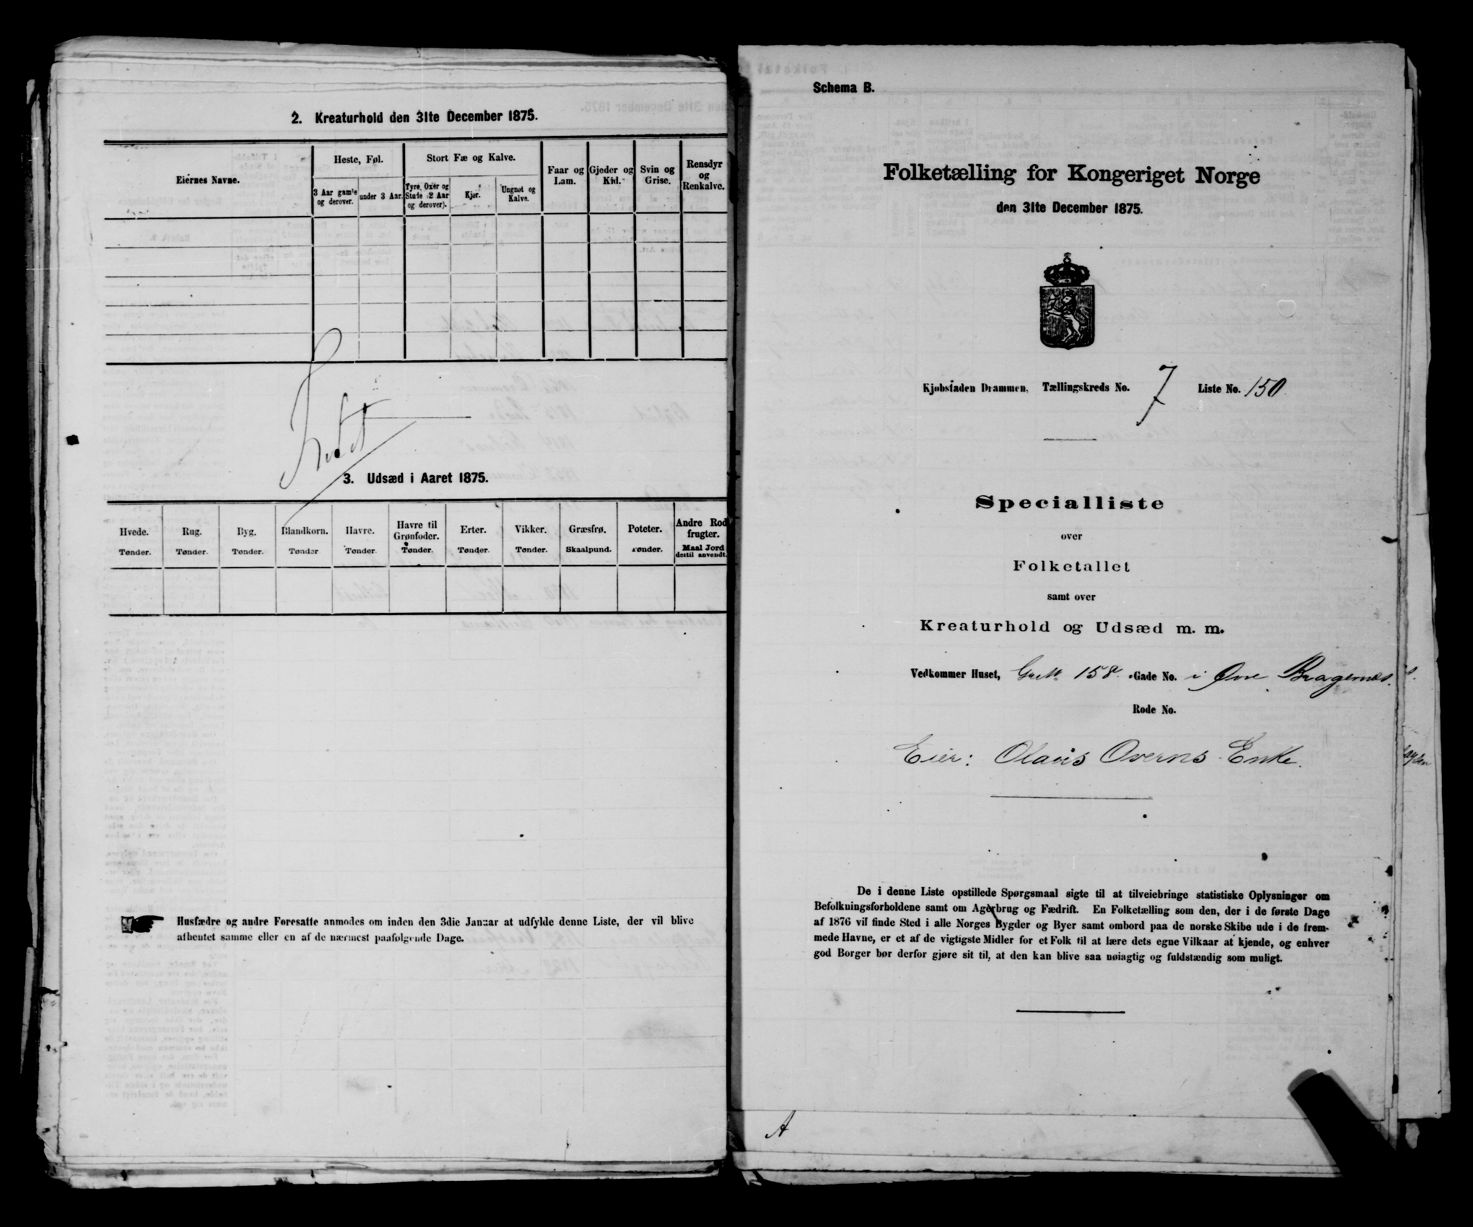 2. Kreaturhold den 31te December 1875.
Eiernes Navne.
Heste, Føl.
Stort Fæ og Kalve.
Faar og Lam.
Gjeder og Kid.
Svin og Grise.
Rensdyr og Renkalve.
3 Aar gamle og derover.
under 3 Aar.
Tyre, Oxer og Stude (2 Aar og derover).
Kjør.
Ungnøt og Kalve.
3. Udsæd i Aaret 1875.
Hvede. Rug. Byg. Blandkorn. Havre. Havre til Grønfoder. Erter. Vikker. Græsfrø. Poteter. Andre Rodfrugter.
Tønder. Tønder. Tønder. Tønder Tønder. Tønder. Tønder. Tønder. Skaalpund. Tønder. Maal Jord dertil anvendt.
Husfædre og andre Foresatte anmodes om inden den 3die Januar at udfylde denne Liste, der vil blive
afhentet samme eller en af de nærmest paafølgende Dage.
Schema B.
Folketælling for Kongeriget Norge
den 31te December 1875.
Kjøbstaden Drammen. Tællingskreds No. 7 Liste No. 150
Specialliste
over
Folketallet
samt over
Kreaturhold og Udsæd m. m.
Vedkommer Huset, 158 Gade No. i Øvre Bragernes.
Rode No.
Eier: Olaus Overns Enke.
De i denne Liste opstillede Spørgsmaal sigte til at tilveiebringe statistiske Oplysninger om
Befolkningsforholdene samt om Agerbrug og Fædrift. En Folketælling som den, der i de første Dage
af 1876 vil finde Sted i alle Norges Bygder og Byer samt ombord paa de norske Skibe ude i de frem-
mede Havne, er et af de vigtigste Midler for et Folk til at lære dets egne Vilkaar at kjende, og enhver
god Borger bør derfor gjøre sit til, at den kan blive saa nøiagtig og fuldstændig som muligt.
A